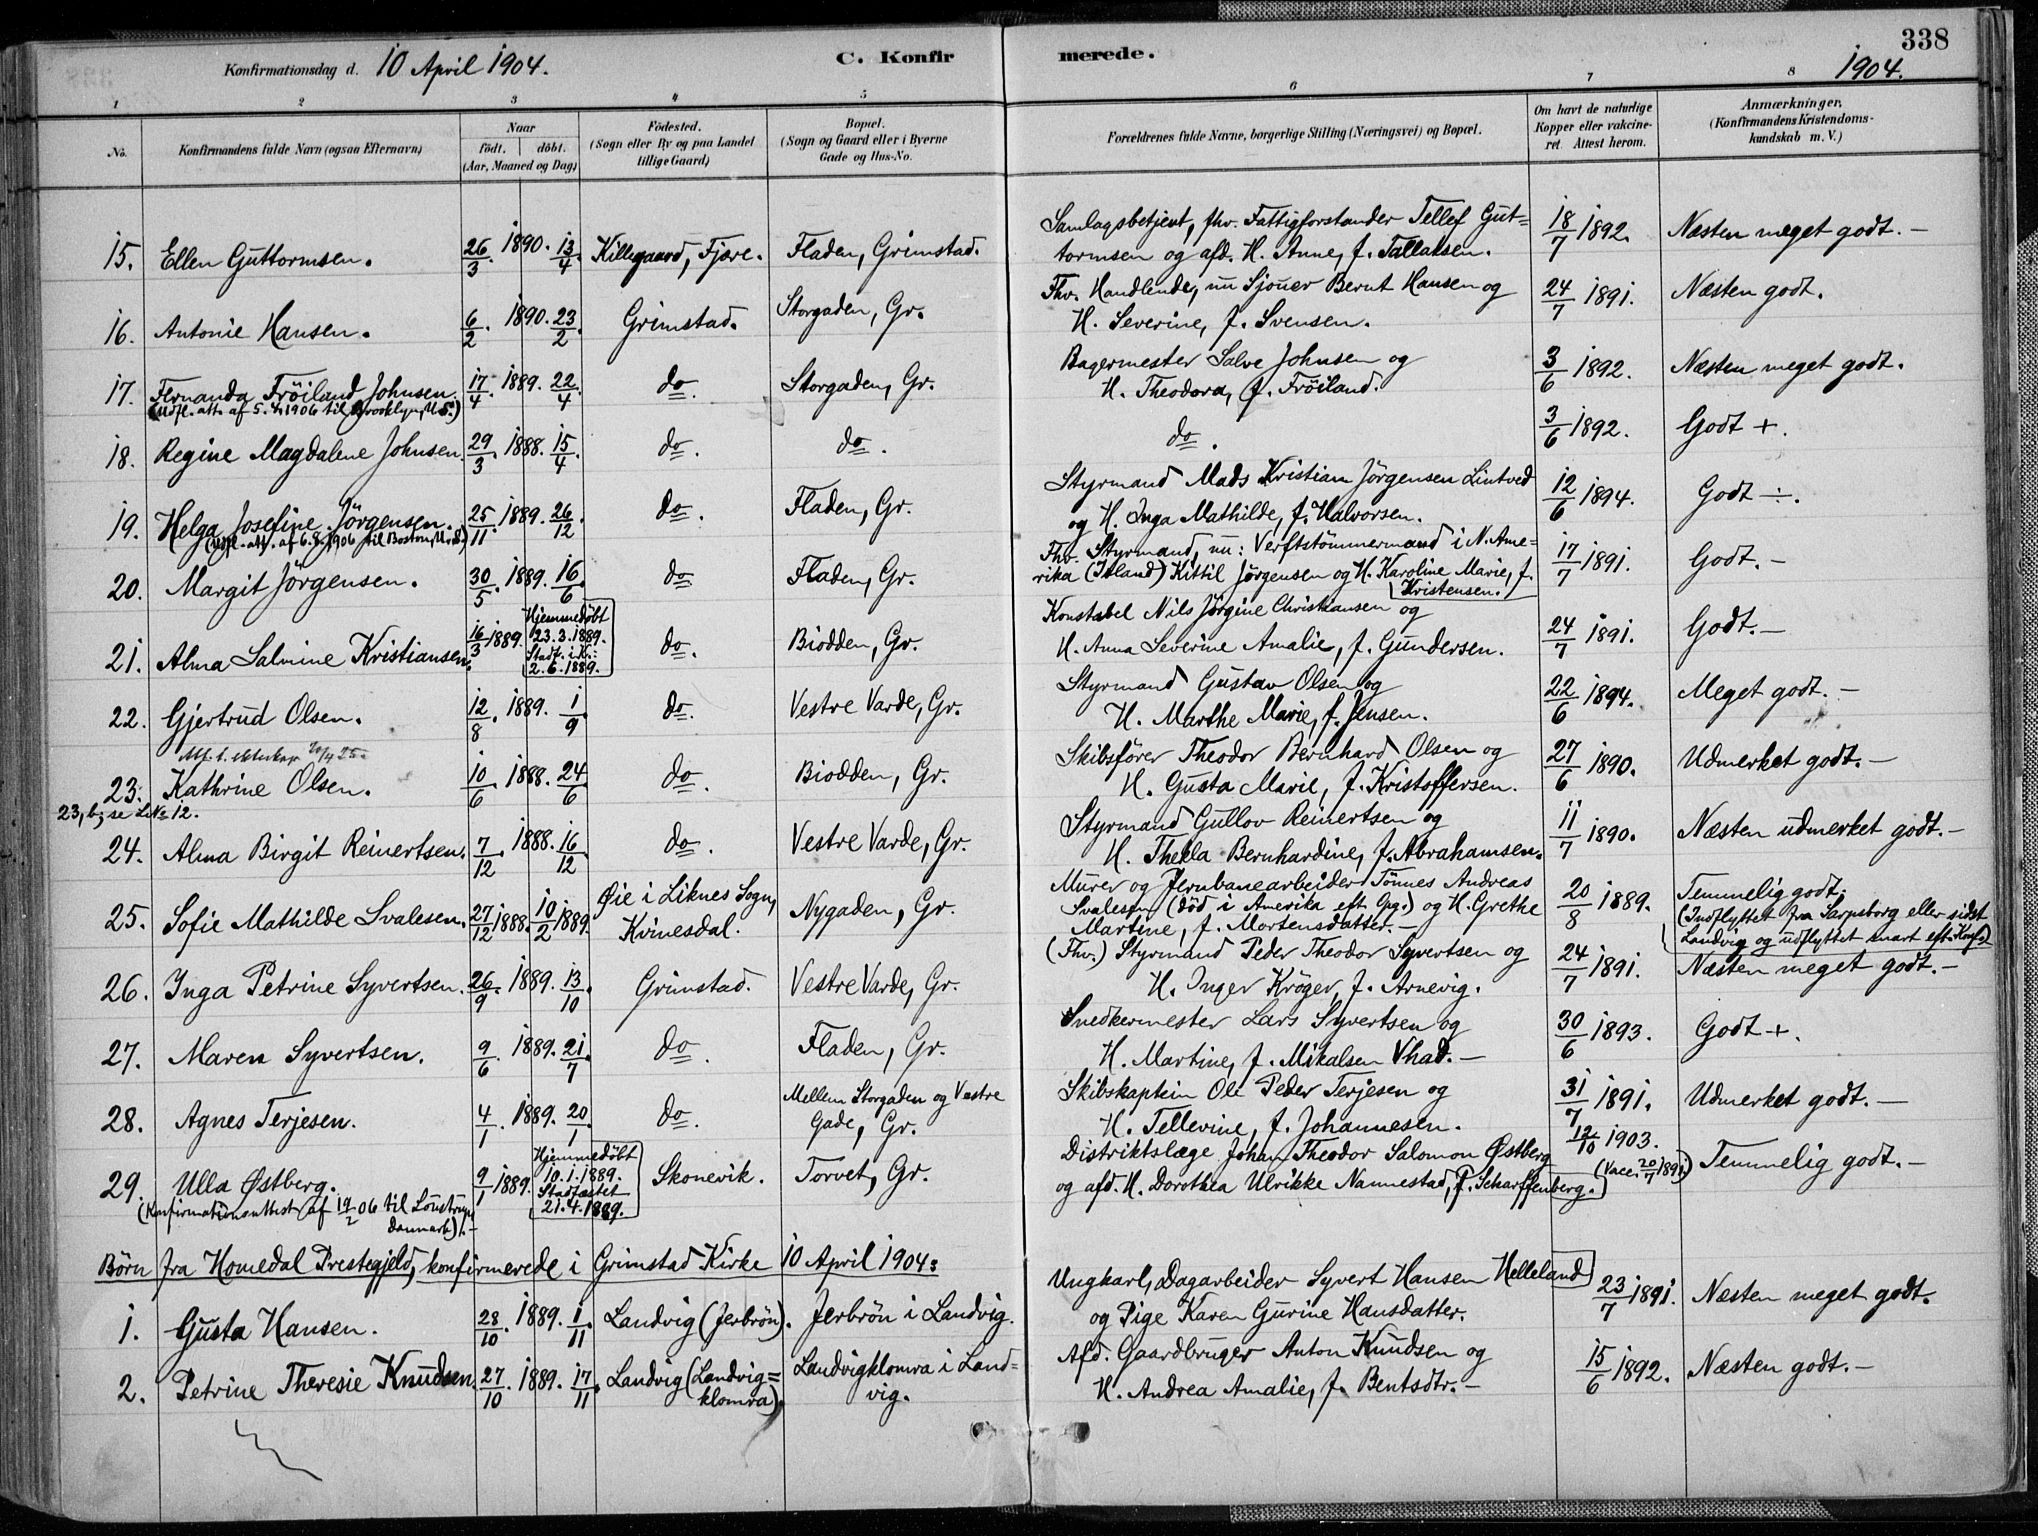 338
Konfirmationsdag d. 10 April 1904. C. Konfirmerede. 1904.
1 2 3 4 5 6 7 8
No. Konfirmandens fulde Navn (ogsaa Efternavn) Naar födt. döbt. (Aar, Maaned og Dag) Födested. (Sogn eller By og paa Landet tillige Gaard) Bopæl. (Sogn og Gaard eller i Byerne Gade og Hus-No. Forældrenes fulde Navne, borgerlige Stilling (Næringsvei) og Bopæl. Om havt de naturlige Kopper eller vakcineret. Attest herom. Anmærkninger. (Konfirmandens Kristendomskundskab m. V.)
15. Ellen Guttormsen. 26/3. 1890. 13/4. Killegaard, Fjære. Fladen, Grimstad. Samlagsbetjent, fhv. Fattigforstander Tellef Gut=
tormsen og afd. H. Anne, f. Tallaksen. 18/7 1892. Næsten meget godt. —
16. Antonie Hansen. 6/2. 1890. 23/2. Grimstad. Storgaden, Gr. Fhv. Handlende, nu Sjouer Bernt Hansen og
H. Severine, f. Svensen. 24/7 1891. Næsten godt.
17. Fernanda Fröiland Johnsen. 17/4. 1889. 22/4. do Storgaden, Gr. Bagermester Salve Johnsen og
(Udfl. att. af 5.4.1906 til Brooklyn, U.S.) H. Theodora, f. Fröiland. 3/6 1892. Næsten meget godt.
18. Regine Magdalene Johnsen. 29/3. 1888. 15/4. do. do. do. 3/6 1892. Godt +.
19. Helga Josefine Jörgensen. 25/11. 1889. 26/12. do. Fladen, Gr. Styrmand Mads Kristian Jörgensen Lintved
og H. Inga Mathilde, f. Halvorsen. 12/6 1894. Godt ÷.
20. Margit Jörgensen. 30/5. 1889. 16/6. do Fladen, Gr. Fhv. Styrmand, nu: Verftstömmermand i N. Ame=
rika (Island) Kittil Jørgensen og H. Karoline Marie, f.
Kristensen. 17/7 1891. Godt. —
21. Alma Salmine Kristiansen. 16/3 1889. Hjemmedöbt 23.3.1889. Stadf. i K.: 2.6.1889. do. Biodden, Gr. Konstabel Nils Jörgine Christiansen og
H. Anna Severine Amalie, f. Gundersen. 24/7 1891. Godt. —
22. Gjertrud Olsen. 12/8. 1889. 1/9. do. Vestre Varde, Gr. Styrmand Gustav Olsen og
H. Marthe Marie, f. Jensen. 22/6 1894. Meget godt. —
23. Kathrine Olsen. 10/6. 1888. 24/6. do. Biodden, Gr. Skibsförer Theodor Bernhard Olsen og
H. Gusta Marie, f. Kristoffersen. 27/6 1890. Udmerket godt. —
23, b; se L. No 12.
24. Alma Birgit Reinertsen. 7/12. 1888. 16/12. do. Vestre Varde, Gr. Styrmand Gullov Reinertsen og
H. Thekla Bernhardine, f. Abrahamsen. 11/7 1890. Næsten udmerket godt. —
25. Sofie Mathilde Svalesen. 27/12 1888. 10/2 1889. Øie i Liknes Sogn, Kvinesdal. Nygaden, Gr. Murer og Jernbanearbeider Tönnes Andreas
Svalesen (död i Amerika eft. Opg.) og H. Grethe
Martine, f. Mortensdatter. — 20/8 1889. Temmelig godt.
(Indflyttet fra Sarpsborg eller sidst
Landvig og udflyttet snart eft. Konf.)
26. Inga Petrine Syvertsen. 26/9. 1889. 13/10. Grimstad. Vestre Varde, Gr. (Fhv.) Styrmand Peder Theodor Syvertsen og
H. Inger Kröger, f. Arnevig. 24/7 1891. Næsten meget godt. —
27. Maren Syvertsen. 9/6. 1889. 21/7. do. Fladen, Gr. Snedkermester Lars Syvertsen og
H. Martine, f. Mikalsen Vhad. — 30/6 1893. Godt +.
28. Agnes Terjesen. 4/1. 1889. 20/1. do. Mellem Storgaden og Vestre Gade, Gr. Skibskaptein Ole Peder Terjesen og
H. Tellevine, f. Johannesen. 31/7 1891. Udmerket godt. —
29. Ulla Østberg. 9/1 1889. Hjemmedöbt 10.1.1889. Stadfæstet 21.4.1889. Skonevik. Torvet, Gr. Distriktslæge Johan Theodor Salomon Østberg
og afd. H. Dorothea Ulrikke Nannestad, f. Scharffenberg. 12/10 1903. (Vacc. 20/7 1891) Temmelig godt. —
(Konfirmationsattest af 19/2 06 til
Danmark). —
Børn fra Homedal Prestegjeld, konfirmerede i Grimstad Kirke 10 April 1904:
1. Gusta Hansen. 28/10. 1889. 1/11. Landvig (Jerbrön). Jerbrön i Landvig. Ungkarl, Dagarbeider Syvert Hansen Helleland
og Pige Karen Gurine Hansdatter. 23/7 1891. Næsten meget godt.
2. Petrine Theresie Knudsen. 27/10. 1889. 17/11. Landvig (Landvig=klomra). Landvigklomra i Land=vig. Afd. Gaardbruger Anton Knudsen og
H. Andrea Amalie, f. Bentsdtr. — 15/6 1892. Næsten godt. —